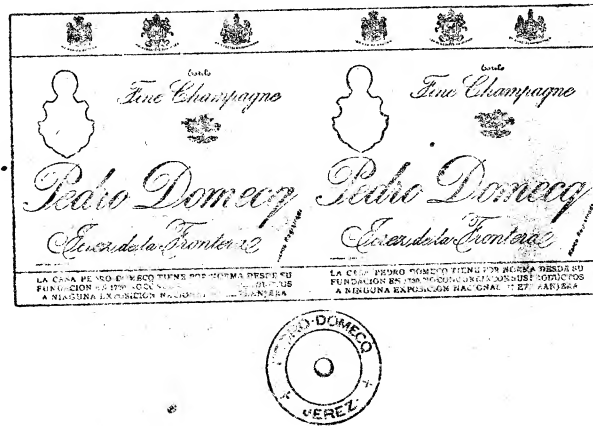 Fine Champagne
Pedro Domecq
Jerez de la Frontera
LA CASA PEDRO DOMECQ TIENE POR NORMA DESDE SU
FUNDACION EN 1730 NO CONCURRIR CON SUS PRODUCTOS
A NINGUNA EXPOSICION NACIONAL NI EXTRANJERA
Fine Champagne
Pedro Domecq
Jerez de la Frontera
LA CASA PEDRO DOMECQ TIENE POR NORMA DESDE SU
FUNDACION EN 1730 NO CONCURRIR CON SUS PRODUCTOS
A NINGUNA EXPOSICION NACIONAL NI EXTRANJERA
PEDRO DOMECQ
JEREZ